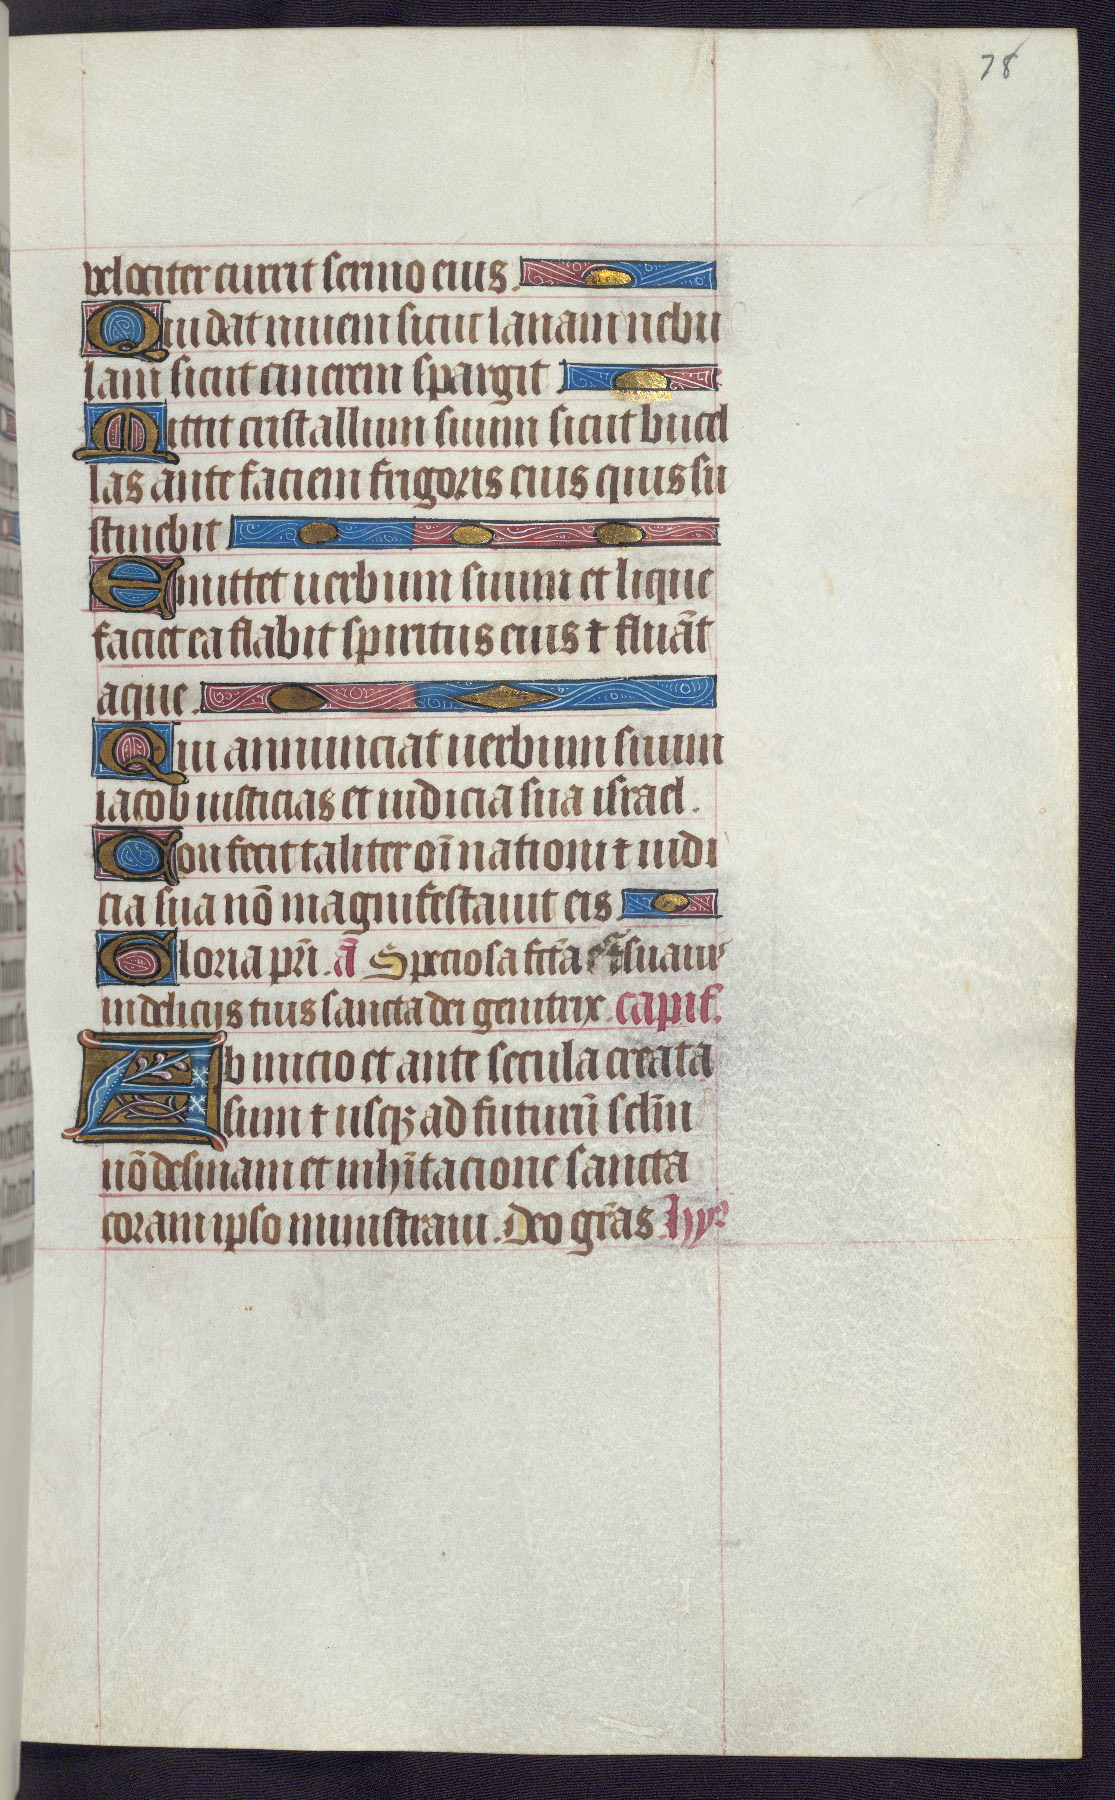 78
velociter currit sermo eius.
Qui dat niuem sicut lanam nebu
lam sicut cinerem spargit
Mittit cristallum suum sicut buccel
las ante faciem frigoris eius quis su
stinebit
Emittet uerbum suum et lique
faciet ea flabit spiritus eius ⁊ fluāt
aque.
Qui annunciat uerbum suum
iacob iusticias et iudicia sua israel.
Non fecit taliter oī nationi ⁊ iudi
cia sua nō magnifestauit eis
Gloria pr̄i. ā Speciosa fc̄a es ⁊ suauis
in delicijs tuis sancta dei genitrix capit̄.
Ab inicio et ante secula creata
sum ⁊ usqꝫ ad futurū scl̄m
nō desinam et in hītacione sancta
coram ipso ministraui. Deo grās hyꝰ